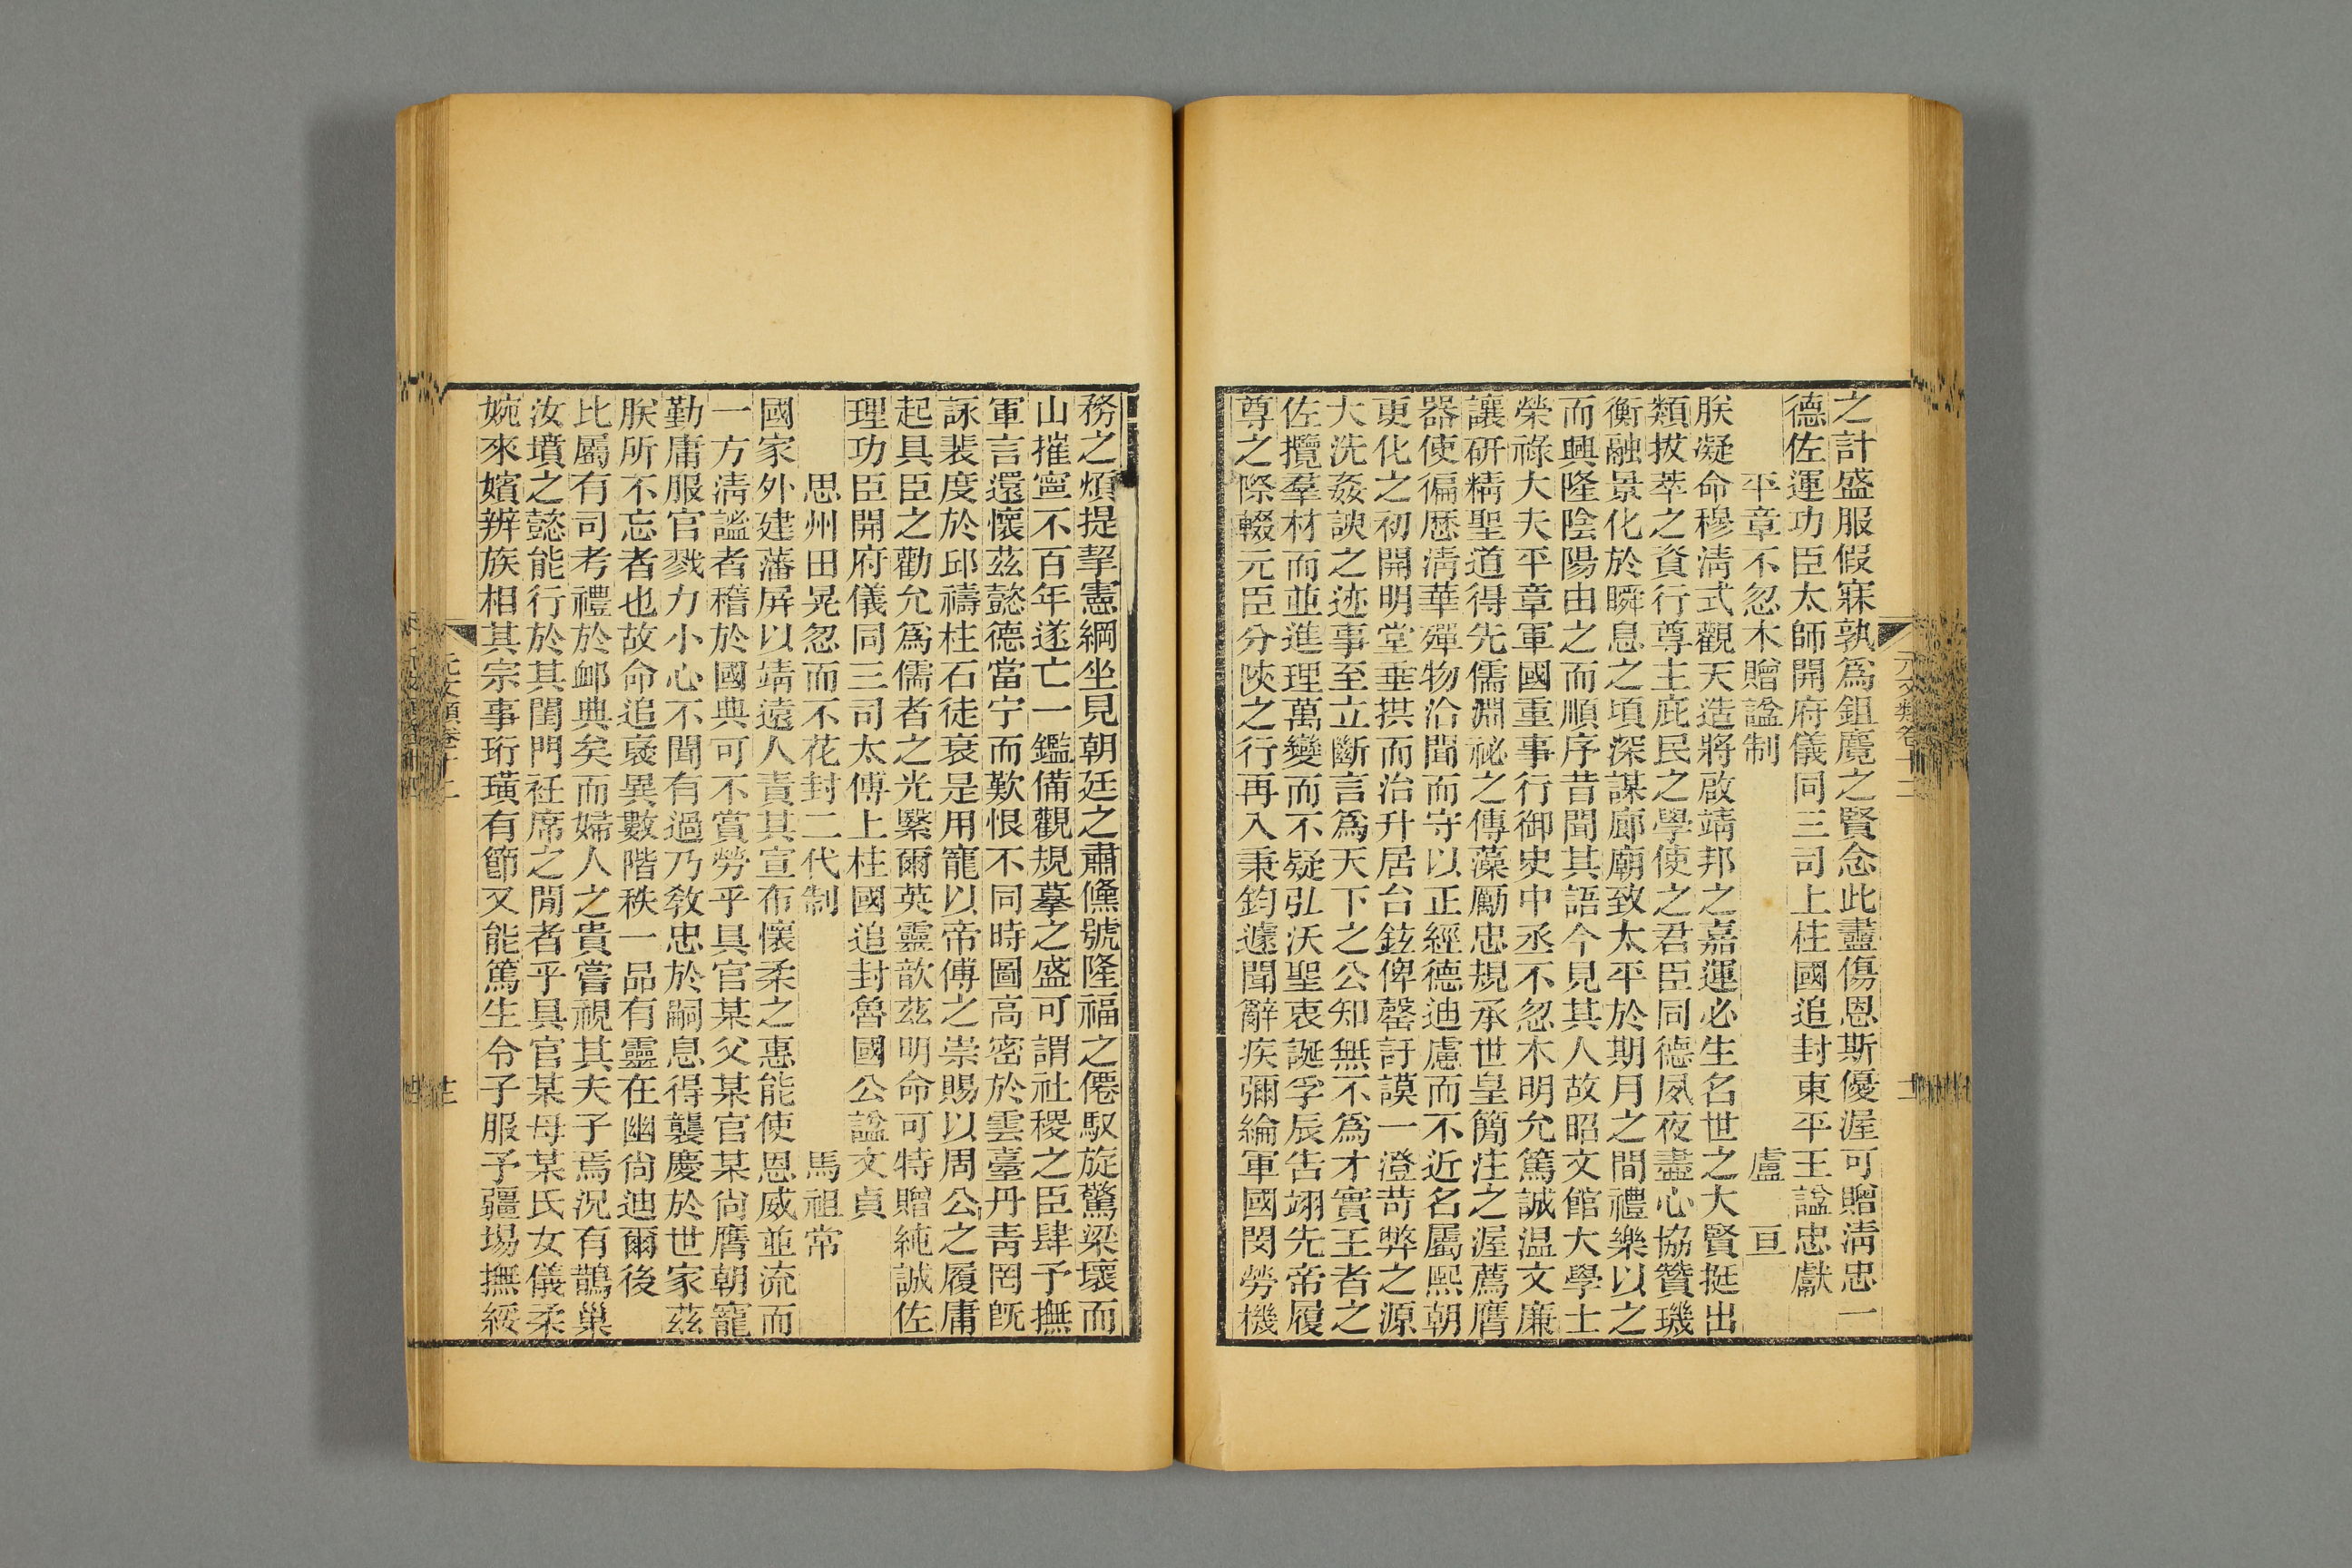 之計盛服假寐孰爲鉏麑之賢念此盡傷恩斯優渥可贈淸忠一
德佐運功臣太師開府儀同三司上柱國追封東平王諡忠獻
平章不忽木贈諡制　盧亘
朕凝命穆淸式觀天造將啟靖邦之嘉運必生名世之大賢挺出
類拔萃之資行尊主庇民之學使之君臣同德夙夜盡心協贊璣
衡融景化於瞬息之頃深謀廊廟致太平於期月之間禮樂以之
而興隆陰陽由之而順序昔聞其語今見其人故昭文館大學士
榮祿大夫平章軍國重事行御史中丞不忽木明允篤誠温文廉
讓研精聖道得先儒淵祕之傳藻勵忠規承世皇簡注之渥薦膺
器使徧歷淸華殫物洽聞而守以正經德迪慮而不近名屬熙朝
更化之初開明堂垂拱而治升居台鉉俾罄訏謨一澄苛弊之源
大洗姦諛之迹事至立斷言爲天下之公知無不爲才實王者之
佐攬羣材而並進理萬變而不疑弘沃聖衷誕孚辰告翊先帝履
尊之際輟元臣分陝之行再入秉鈞遽聞辭疾彌綸軍國閔勞機
務之煩提挈憲綱坐見朝廷之肅儵號隆福之僊馭旋驚梁壞而
山摧寧不百年遂亡一鑑備觀規摹之盛可謂社稷之臣肆予撫
軍言還懷茲懿德當宁而歎恨不同時圖高密於雲臺丹靑罔旣
詠裴度於邱禱柱石徒衰是用寵以帝傅之崇賜以周公之履庸
起具臣之勸允爲儒者之光緊爾英靈歆茲明命可特贈純誠佐
理功臣開府儀同三司太傅上柱國追封魯國公諡文貞
思州田晃忽而不花封二代制　馬祖常
國家外建藩屏以靖遠人責其宣布懷柔之惠能使恩威並流而
一方淸謐者稽於國典可不賞勞乎具官某父某官某尙膺朝寵
勤庸服官戮力小心不聞有過乃敎忠於嗣息得襲慶於世家茲
朕所不忘者也故命追襃異數階秩一品有靈在幽尙迪爾後
比屬有司考禮於邺典矣而婦人之貴嘗視其夫子焉況有鵲巢
汝墳之懿能行於其閨門衽席之閒者乎具官某母某氏女儀柔
婉來嬪辨族相其宗事珩璜有節又能篤生令子服予疆埸撫綏